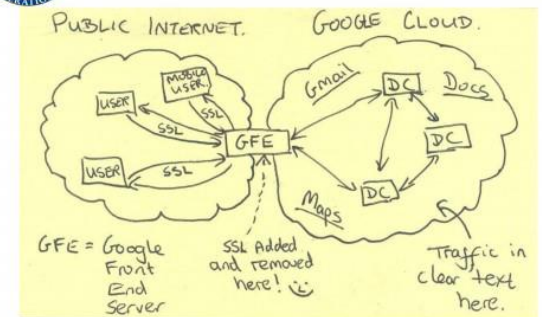 PUBLIC INTERNET.
GOOGLE CLOUD.
MOBILE
USER.
USER
SSL
SSL
USER
SSL
GFE
Gmail
DC
Docs
DC
Maps
DC
GFE = Google
Front
End
Server
SSL Added
and removed
here!
Traffic in
clear text
here.